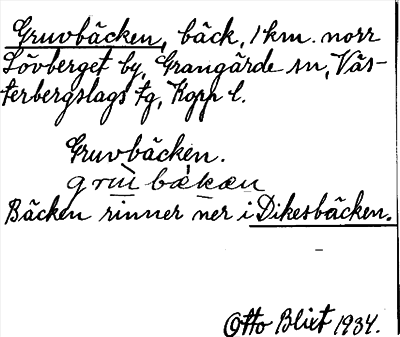 Gruvbäcken, bäck, 1 km. norr
Lövberget by, Grangärde sn, Väs-
terbergslags tg, Kopp l.
Gruvbäcken.
Bäcken rinner ner i Dikesbäcken.
Otto Blixt 1934.